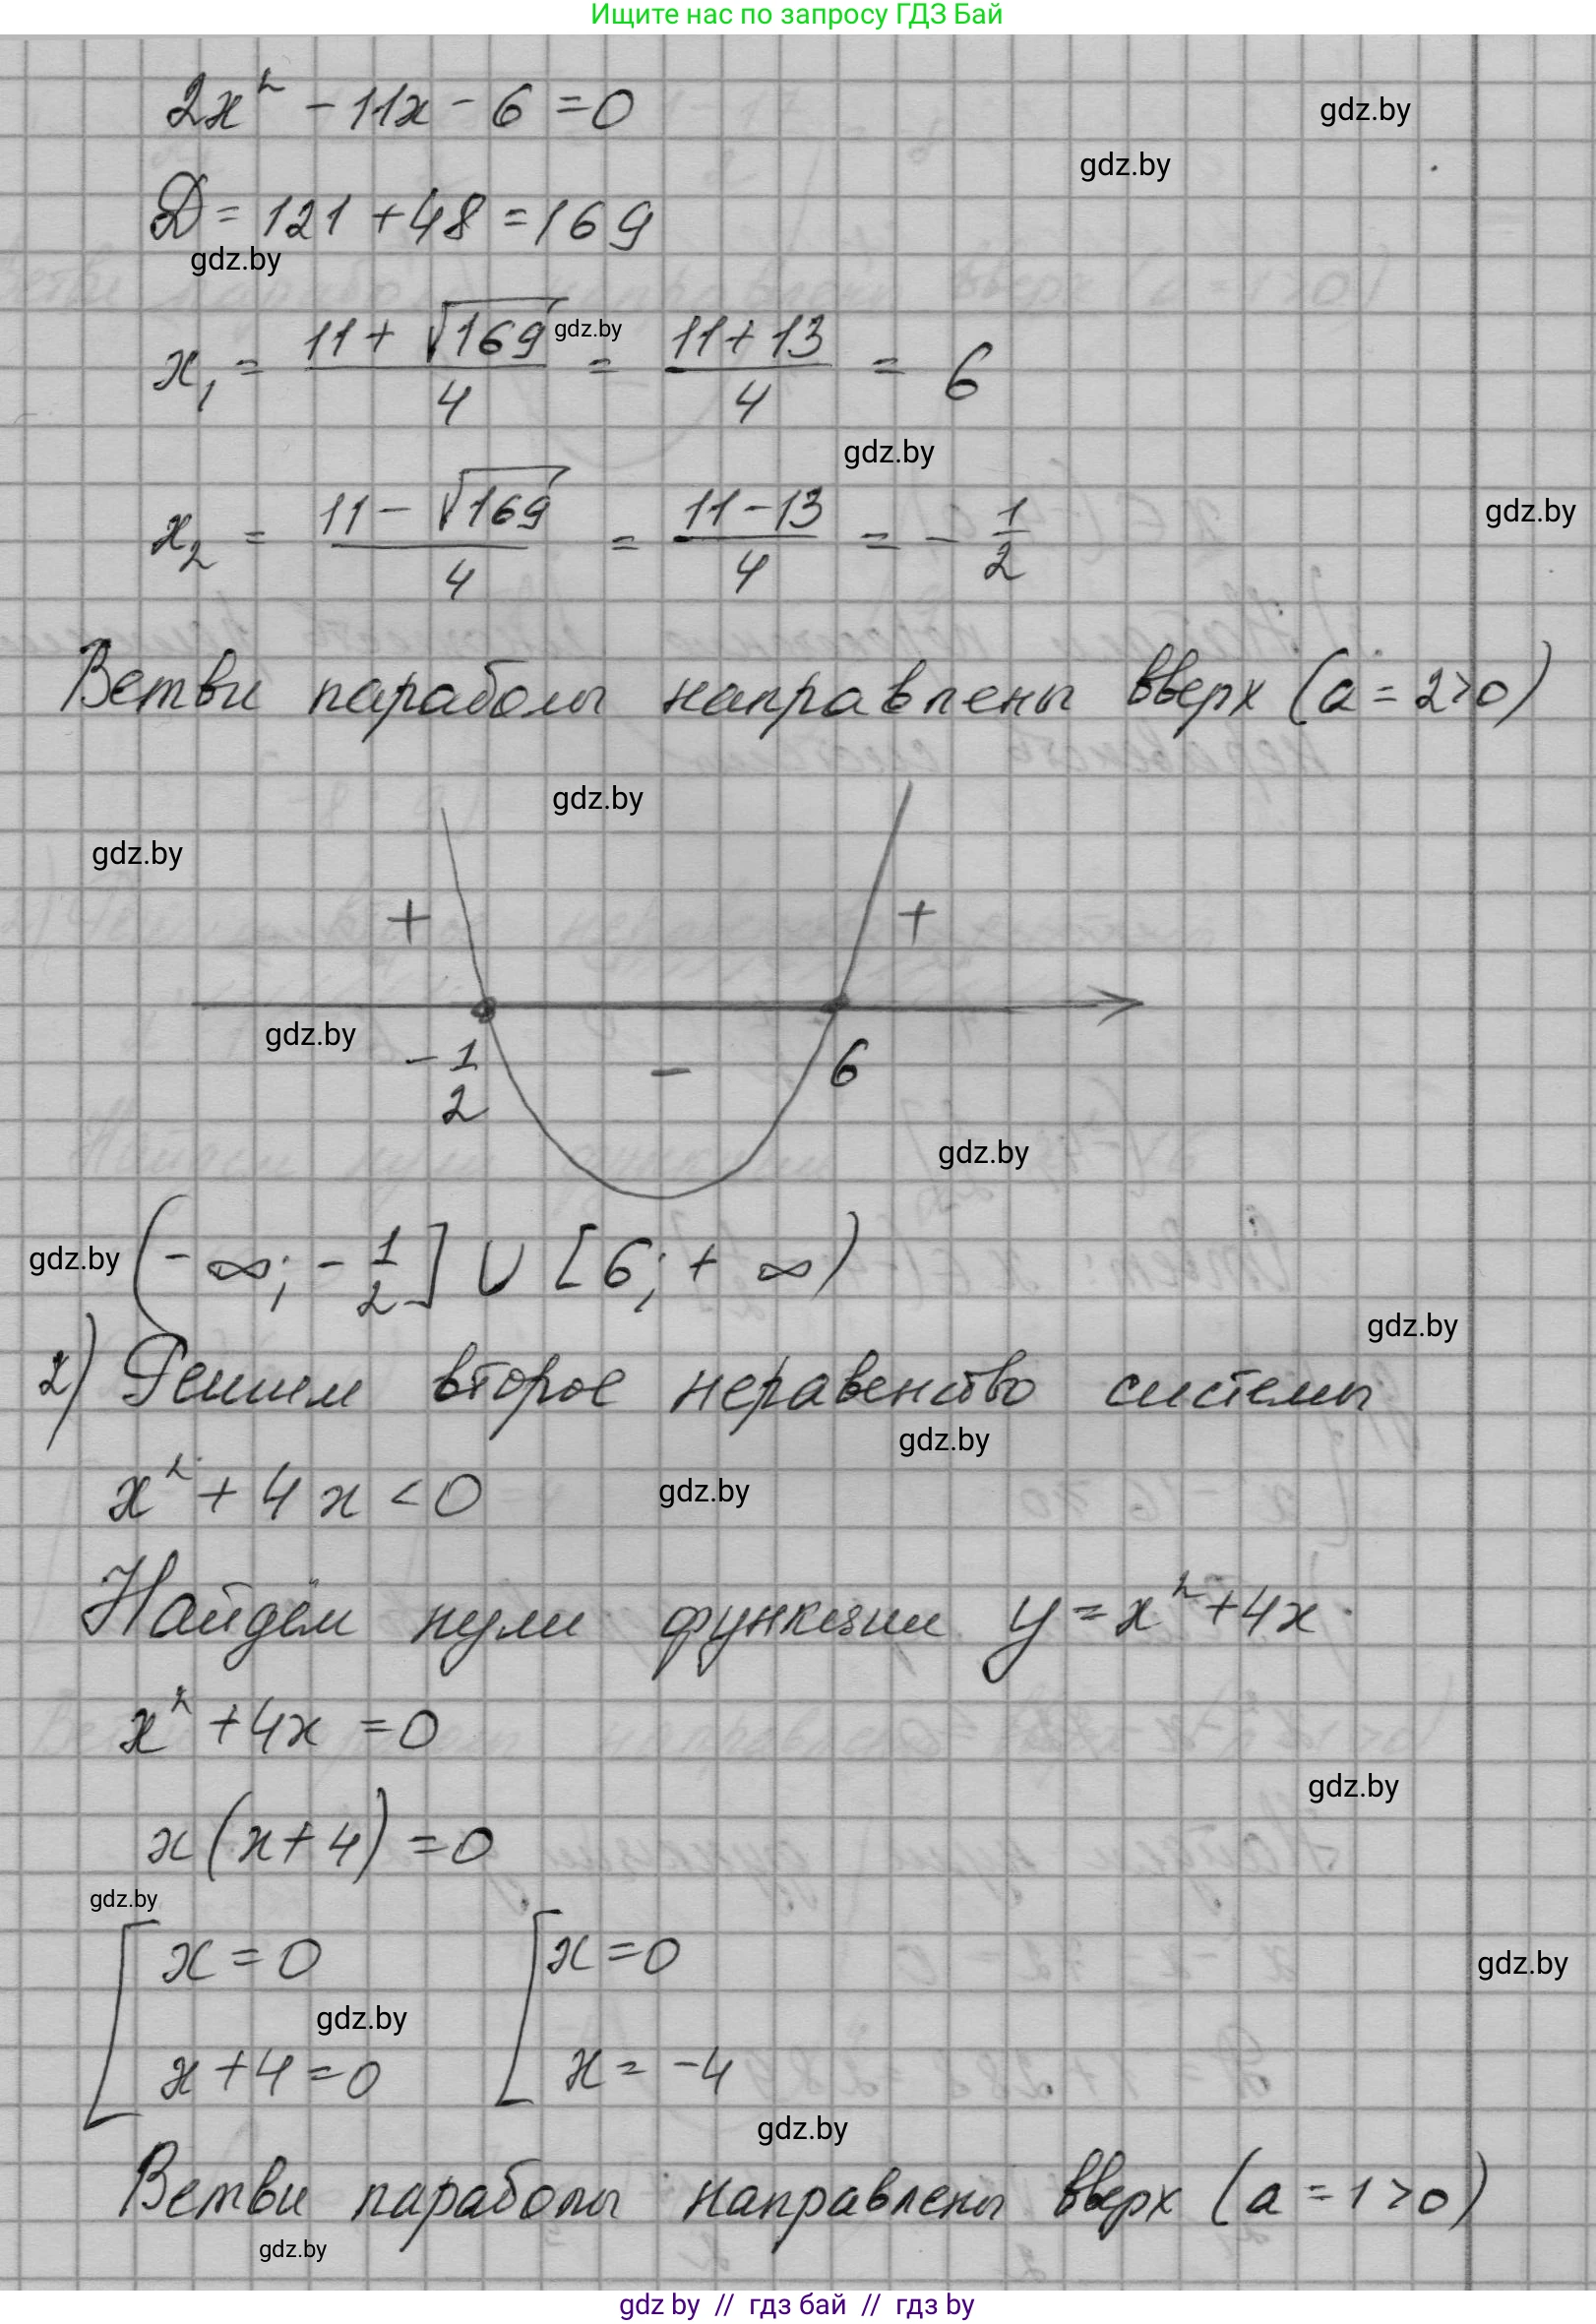 Ищите нас по запросу ГДЗ Бай
2x² - 11x - 6 = 0
gdz.by
gdz.by
D = 121 + 48 = 169
gdz.by
x₁ = (11 + √169)/4 = (11 + 13)/4 = 6
gdz.by
gdz.by
x₂ = (11 - √169)/4 = (11 - 13)/4 = - 1/2
gdz.by
Ветви параболы направлены вверх (a = 2>0)
gdz.by
gdz.by
+ +
gdz.by
- 1/2 - 6
gdz.by
gdz.by (-∞; - 1/2] ∪ [6; + ∞)
gdz.by
2) Решим второе неравенство системы
gdz.by
x² + 4x < 0
gdz.by
Найдём нули функции y = x² + 4x
x² + 4x = 0
gdz.by
x(x + 4) = 0
gdz.by
[ x = 0 [ x = 0
gdz.by
gdz.by
x + 4 = 0 x = -4
gdz.by
Ветви параболы направлены вверх (a = 1 > 0)
gdz.by
gdz by // гдз бай // гдз by